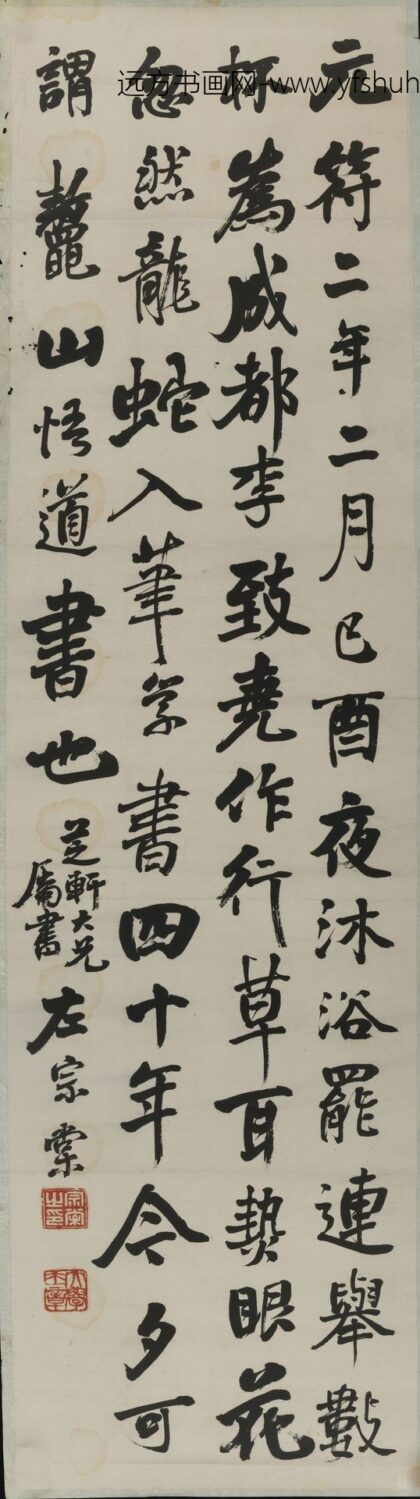 元符二年二月己酉夜沐浴罷連舉數
杯爲成都李致堯作行草耳熱眼花
忽然龍蛇入筆學書四十年今夕可
謂鼇山悟道書也
芝軒大兄
屬書
左宗棠
远方书画网-www.yfshuh